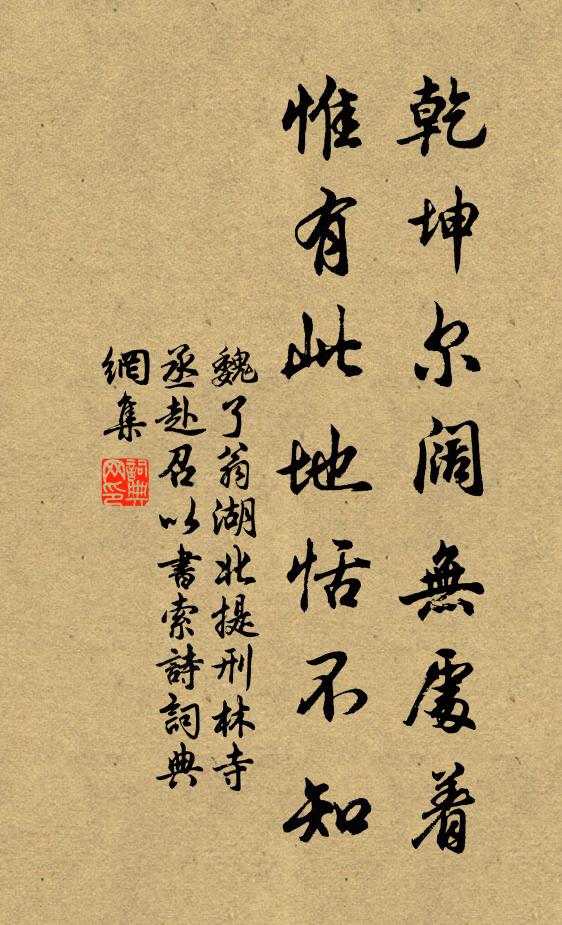 乾坤尔阔無處着
惟有此地恬不知
魏了翁湖北提刑林寺
丞赴召以書索詩詞典
網集
詞典網印